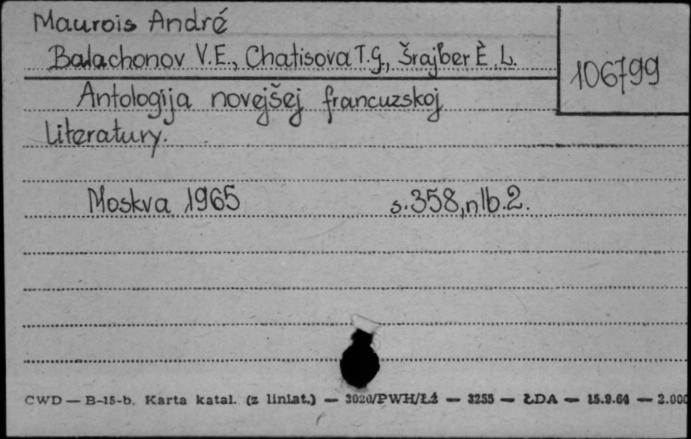 Maurois André
Balachonov V.E., Chatisova T.G., Šrajber È.L.
106799
Antologija novejšej francuzskoj
literatury.
Moskva 1965 s.358,nlb.2.
CWD — B-15-b. Karta katal. (z liniat.) — 3020/PWH/Łź — 3255 — ŁDA — 15.9.64 — 2.000